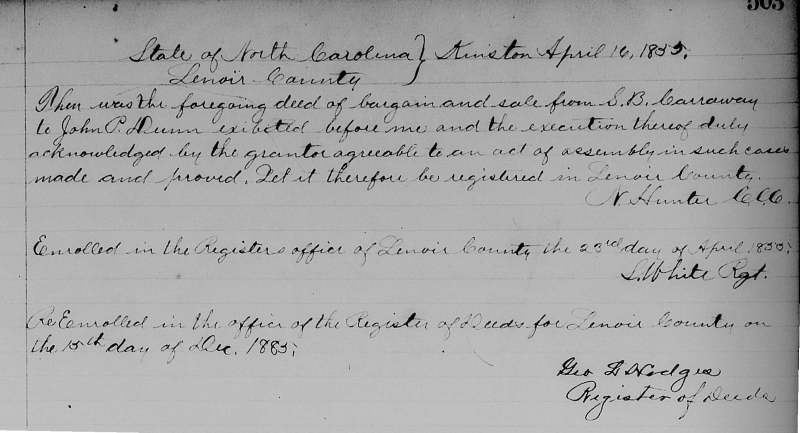 503
State of North Carolina } Kinston April 16, 1855.
Lenoir County
Then was the foregoing deed of bargain and sale from S.B. Carraway
to John P. Dunn exibeted before me and the execution thereof duly
acknowledged by the grantor agreeable to an act of assembly in such cases
made and proved. Let it therefore be registered in Lenoir County.
N. Hunter C.C.C.
Enrolled in the Registers office of Lenoir County the 23rd day of April 1855.
S. White Rgt.
ReEnrolled in the office of the Register of Deeds for Lenoir County on
the 15th day of Dec. 1885.
Geo Hodges
Register of Deeds